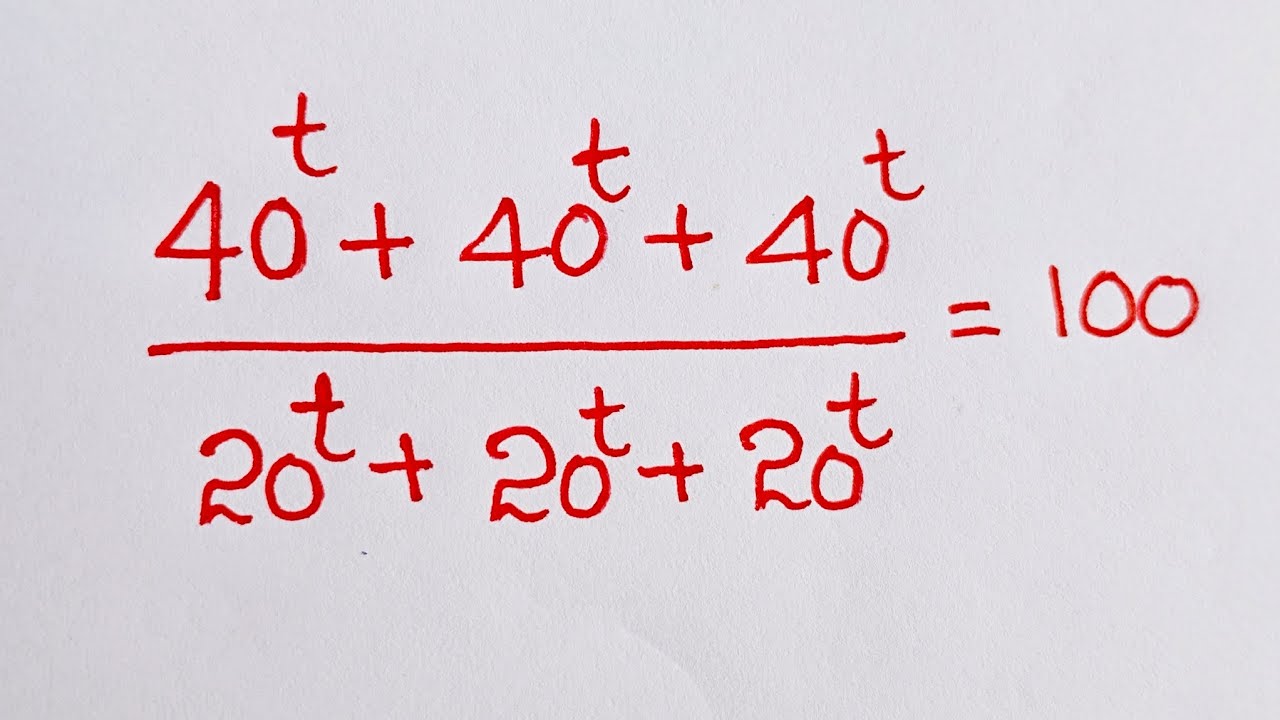 40^t + 40^t + 40^t
20^t + 20^t + 20^t
= 100